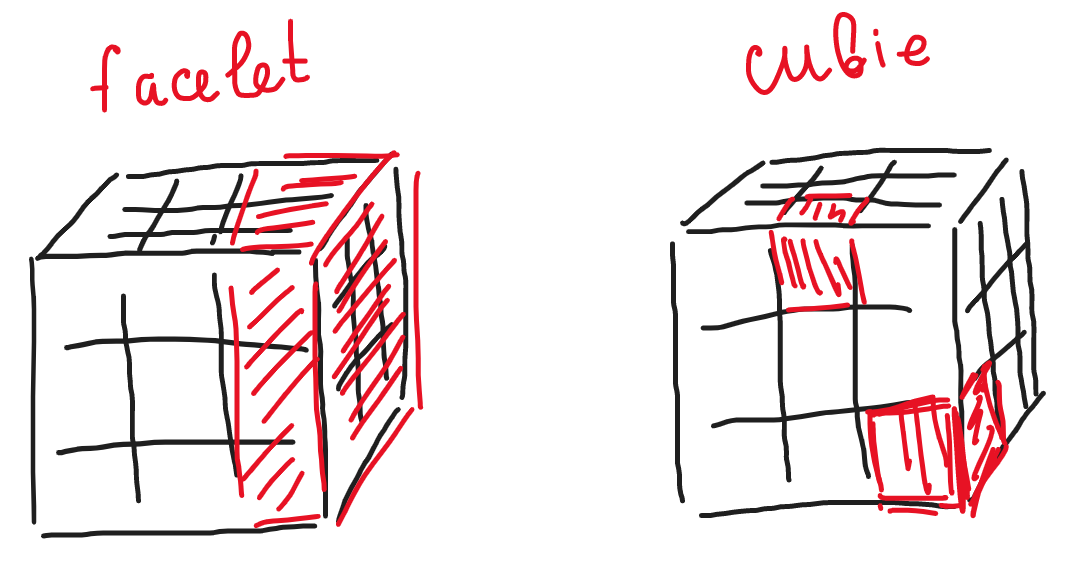 facelet
cubie